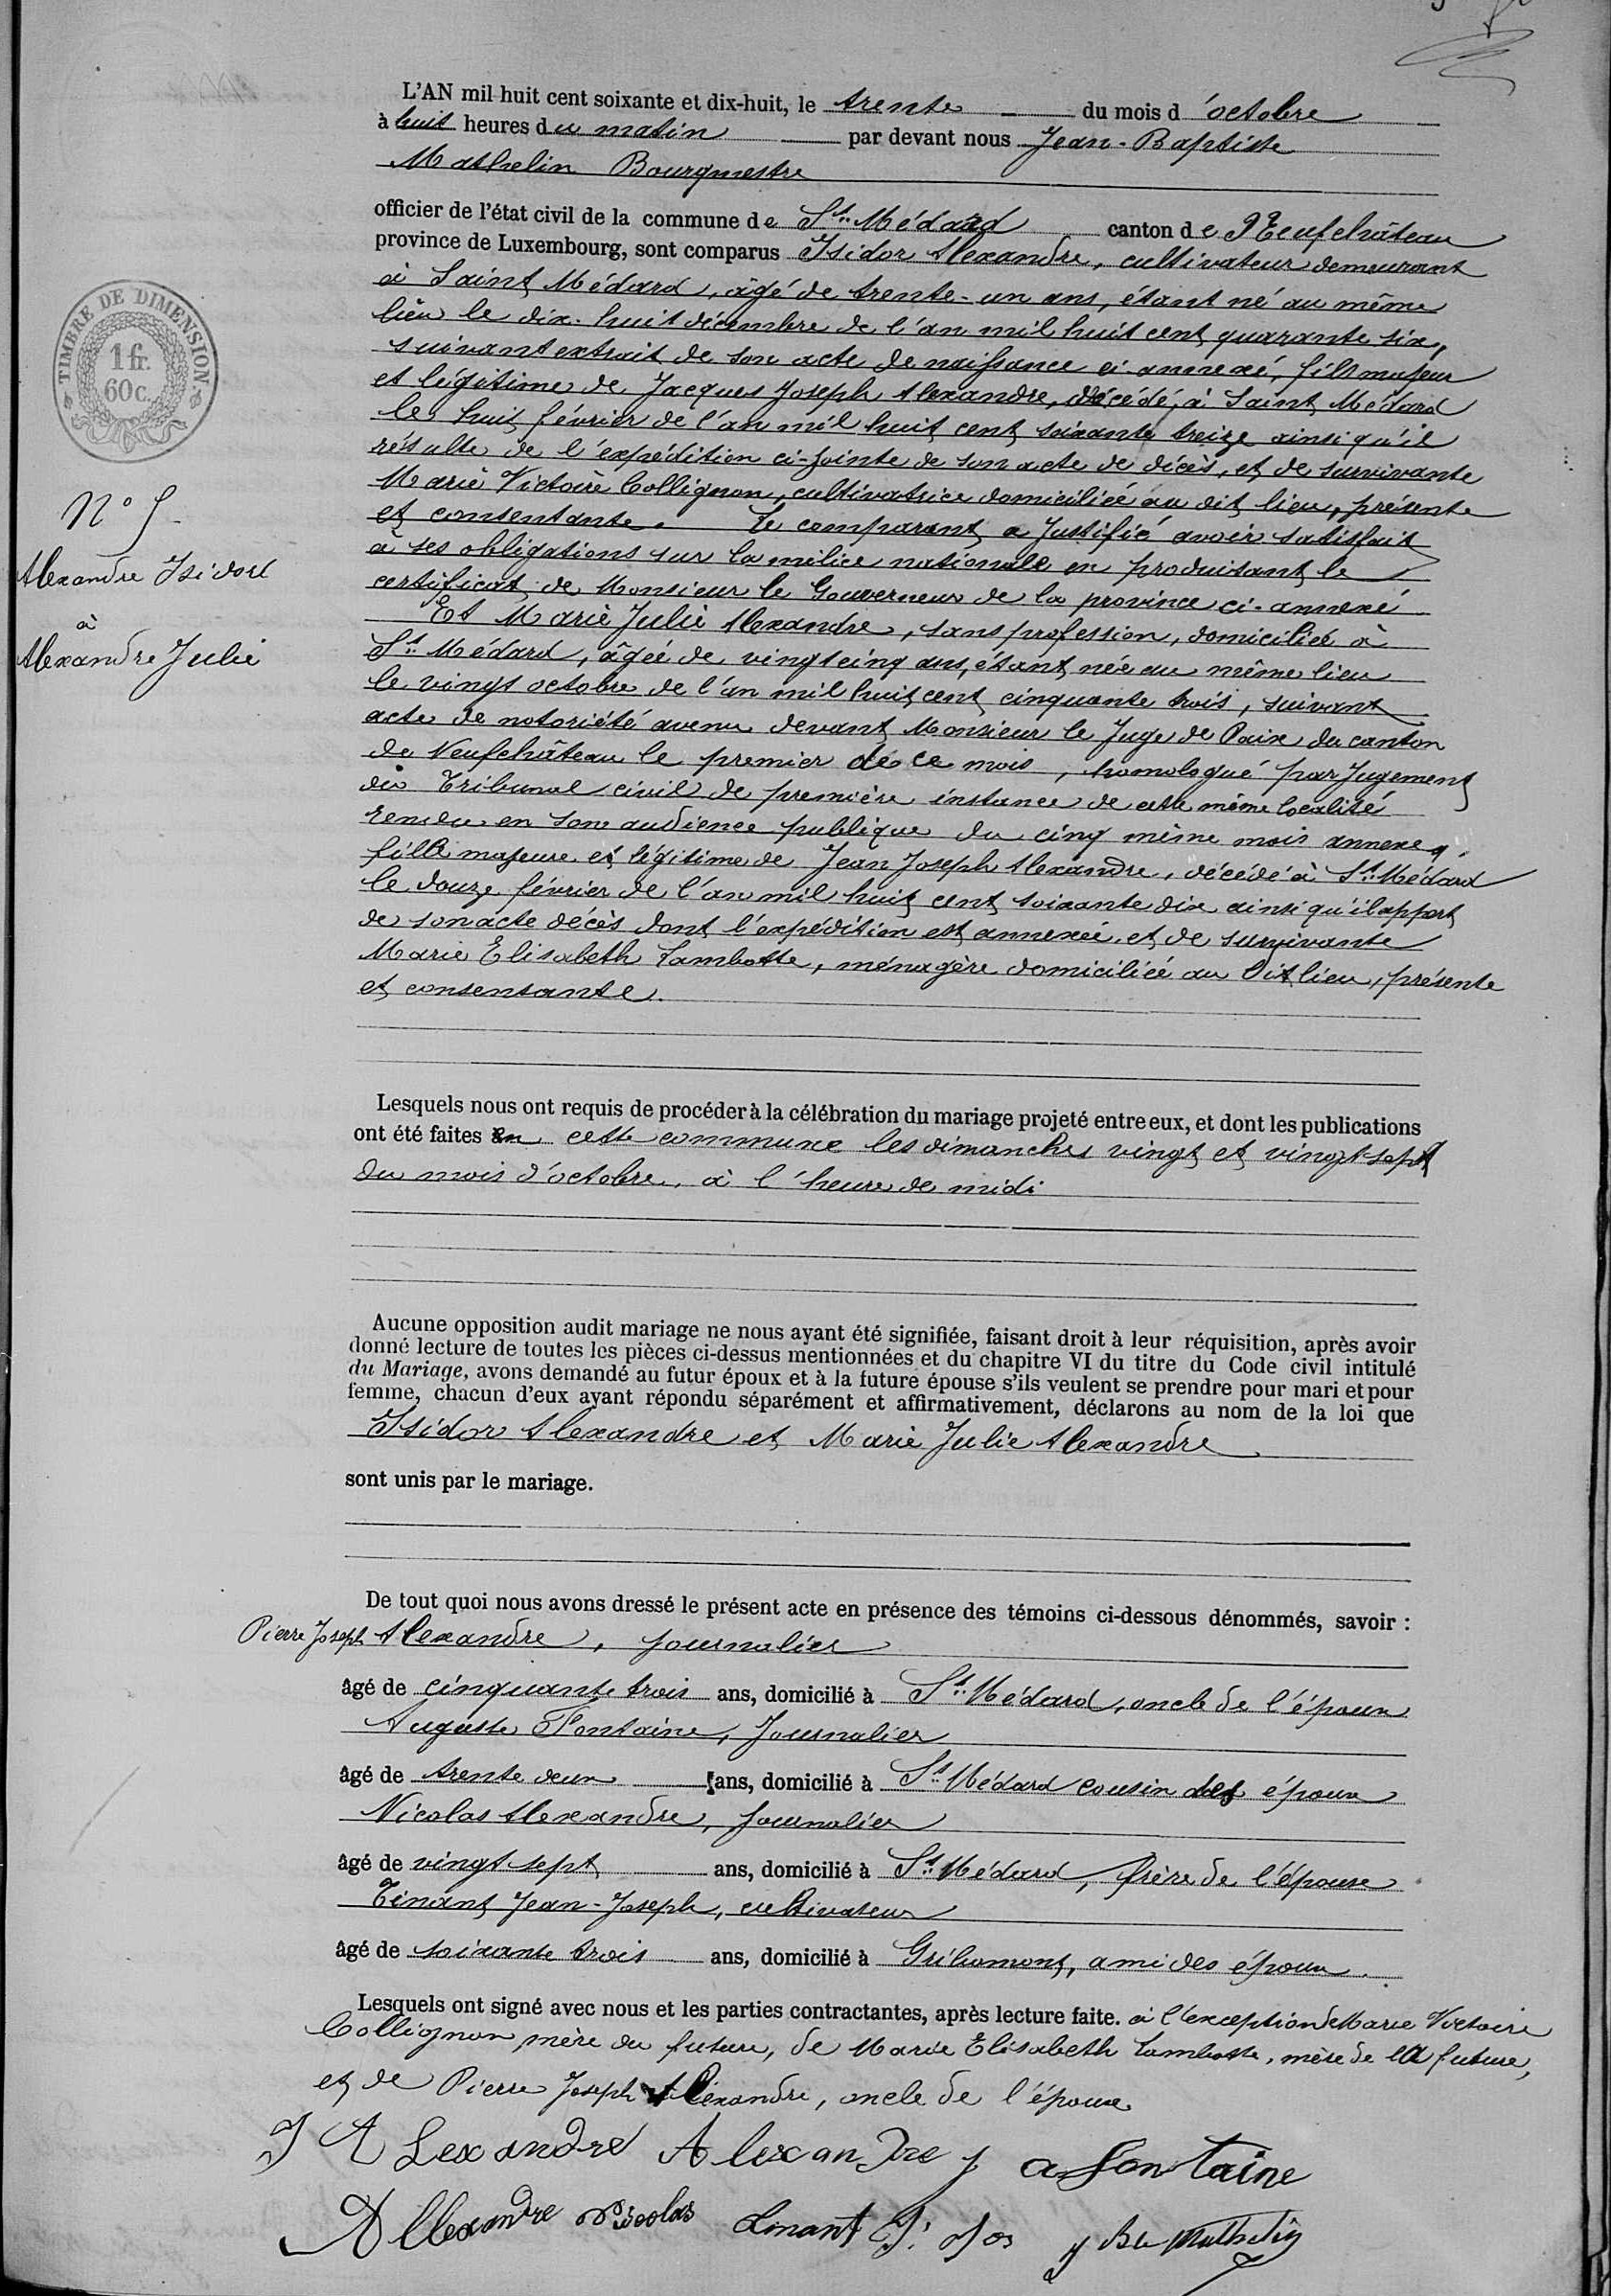 L'AN mil huit cent soixante et dix-huit, le trente du mois d'octobre
à huit heures du matin par devant nous Jean-Baptiste
Mathelin Bourgmestre
officier de l'état civil de la commune de St. Médard canton de Neufchâteau
province de Luxembourg, sont comparus Isidor Alexandre, cultivateur demeurant
à Saint Médard, âgé de trente-un ans, étant né au même
lieu le dix-huit décembre de l'an mil huit cent quarante six,
suivant extrait de son acte de naissance ci-annexé, fils majeur
et légitime de Jacques Joseph Alexandre, décédé, à Saint Médard
le huit février de l'an mil huit cent soixante treize ainsi qu'il
résulte de l'expédition ci-jointe de son acte de décès, et de survivante
Marie Victoire Collignon, cultivatrice domiciliée au dit lieu, présente
et consentante. Le comparant a justifié avoir satisfait
à ses obligations sur la milice nationale en produisant le
certificat de Monsieur le Gouverneur de la province ci-annexé
Et Marie Julie Alexandre, sans profession, domiciliée à
St. Médard, âgée de vingt cinq ans, étant née au même lieu
le vingt octobre de l'an mil huit cent cinquante trois, suivant
acte de notoriété avenu devant Monsieur le Juge de Paix du canton
de Neufchâteau le premier de ce mois, homologué par Jugement
du Tribunal civil de première instance de cette même localité
rendu en son audience publique du cinq même mois annexé,
fille majeure et légitime de Jean Joseph Alexandre, décédé à St. Médard
le douze février de l'an mil huit cent soixante dix ainsi qu'il appert
de son acte décès dont l'expédition est annexée, et de survivante
Marie Elisabeth Lambotte, ménagère domiciliée au dit lieu, présente
et consentante.
N° 5
Alexandre Isidore
à
Alexandre Julie
TIMBRE DE DIMENSION.
1 fr.
60 c.
Lesquels nous ont requis de procéder à la célébration du mariage projeté entre eux, et dont les publications
ont été faites en cette commune les dimanches vingt et vingt-sept
du mois d'octobre, à l'heure de midi
Aucune opposition audit mariage ne nous ayant été signifiée, faisant droit à leur réquisition, après avoir
donné lecture de toutes les pièces ci-dessus mentionnées et du chapitre VI du titre du Code civil intitulé
du Mariage, avons demandé au futur époux et à la future épouse s'ils veulent se prendre pour mari et pour
femme, chacun d'eux ayant répondu séparément et affirmativement, déclarons au nom de la loi que
Isidor Alexandre et Marie Julie Alexandre
sont unis par le mariage.
De tout quoi nous avons dressé le présent acte en présence des témoins ci-dessous dénommés, savoir :
Pierre Joseph Alexandre, journalier
âgé de cinquante trois ans, domicilié à St. Médard, oncle de l'époux
Auguste Fontaine, Journalier
âgé de trente deux ans, domicilié à St. Médard cousin des époux
Nicolas Alexandre, journalier
âgé de vingt sept ans, domicilié à St. Médard, frère de l'épouse
Tinant Jean-Joseph, cultivateur
âgé de soixante trois ans, domicilié à Gribomont, ami des époux.
Lesquels ont signé avec nous et les parties contractantes, après lecture faite. à l'exception de Marie Victoire
Collignon mère du future, de Marie Elisabeth Lambotte, mère de la future,
et de Pierre Joseph Alexandre, oncle de l'époux
I Alexandre Alexandre j a fontaine
Alexandre Nicolas Linant J. Jos j Bte Mathelin